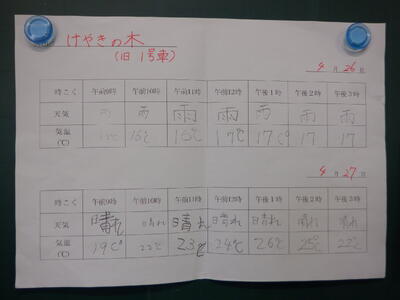 けやきの木
(旧 1号車)
4月26日
時こく 午前9時 午前10時 午前11時 午前12時 午後1時 午後2時 午後3時
天気 雨 雨 雨 雨 雨 雨 雨
気温(℃) 16℃ 16℃ 17℃ 17℃ 17 17
4月27日
時こく 午前9時 午前10時 午前11時 午前12時 午後1時 午後2時 午後3時
天気 晴れ 晴れ 晴れ 晴れ 晴れ 晴れ 晴れ
気温(℃) 19℃ 22℃ 23℃ 24℃ 26℃ 25℃ 22℃